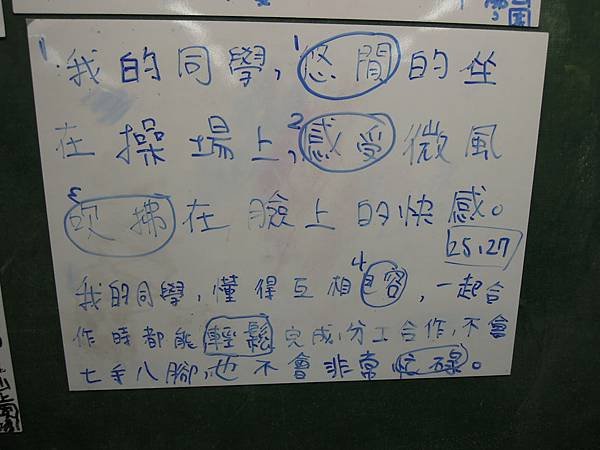 1 我的同學,1悠閒的坐
在操場上,2感受微風
3吹拂在臉上的快感。
25、27
我的同學,懂得互相4包容,一起合
作時都能輕鬆完成,分工合作,不會
七手八腳,也不會非常忙碌。